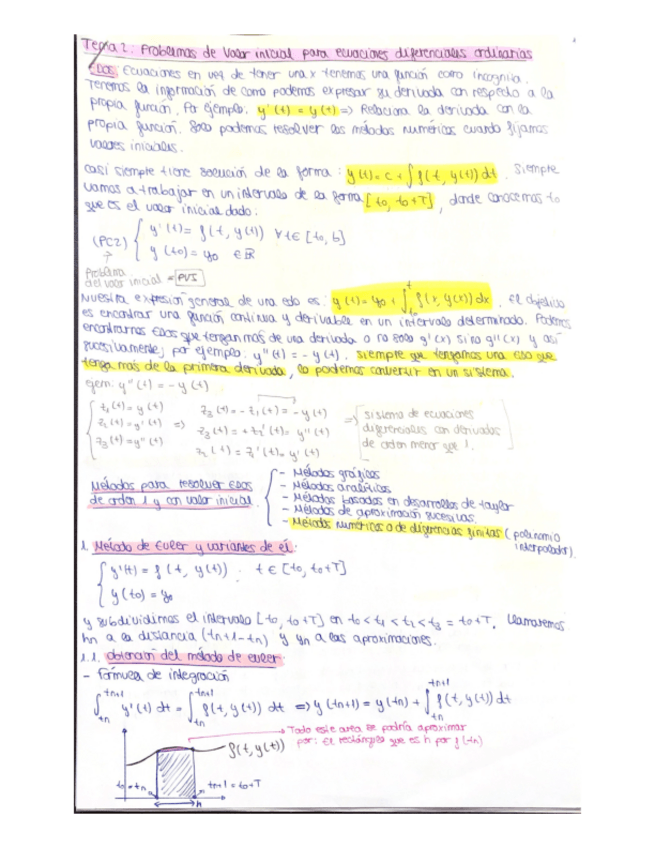 Tema 2: Problemas de valor inicial para ecuaciones diferenciales ordinarias
EDOs: Ecuaciones en vez de tener una x tenemos una función como incognita.
Tenemos la información de como podemos expresar su derivada con respecto a la
propia función. Por ejemplo: y'(t) = y(t) => Relaciona la derivada con la
propia función. Solo podemos resolver los métodos numéricos cuando fijamos
valores iniciales.
Casi siempre tiene solución de la forma: y(t) = c + ∫ f(t, y(t)) dt. Siempre
vamos a trabajar en un intervalo de la forma [t0, t0+T], donde conocemos t0
que es el valor inicial dado:
(PC2) { y'(t) = f(t, y(t)) ∀t∈ [t0, b]
y(t0) = y0 ∈ℝ
Problema
del valor inicial = PVI
Nuestra expresión general de una edo es: y(t) = y0 + ∫_{t0}^{t} f(x, y(x)) dx. El objetivo
es encontrar una función continua y derivable en un intervalo determinado. Podemos
encontrarnos EDOs que tengan más de una derivada o no solo y'(x) sino y''(x) y así
sucesivamente; por ejemplo: y''(t) = -y(t). Siempre que tengamos una EDO que
tenga más de la primera derivada, la podemos convertir en un sistema.
ejem: y''(t) = -y(t)
z1(t) = y(t)
z2(t) = y'(t) =>
z3(t) = y''(t)
z3(t) = -z1(t) = -y(t)
z3(t) = +z2'(t) = y''(t)
z2(t) = z1'(t) = y'(t)
=> sistema de ecuaciones
diferenciales con derivadas
de orden menor que 1.
Métodos para resolver EDOs
de orden 1 y con valor inicial.
- Métodos gráficos
- Métodos analíticos
- Métodos basados en desarrollos de taylor
- Métodos de aproximación sucesivas.
- Métodos numéricos o de diferencias finitas (polinomio
interpolador).
1. Método de Euler y variantes de él:
{ y'(t) = f(t, y(t)). t ∈ [t0, t0+T]
y(t0) = y0
y subdividimos el intervalo [t0, t0+T] en t0 < t1 < t2 < t3 = t0+T. Llamaremos
hn a la distancia (tn+1 - tn) y yn a las aproximaciones.
1.1. obtención del método de euler:
- Fórmula de integración
∫_{tn}^{tn+1} y'(t) dt = ∫_{tn}^{tn+1} f(t, y(t)) dt => y(tn+1) = y(tn) + ∫_{tn}^{tn+1} f(t, y(t)) dt
Todo este area se podría aproximar
por: El rectángulo que es h por f(tn)
f(t, y(t))
t0 = tn
tn+1 = t0+T
h